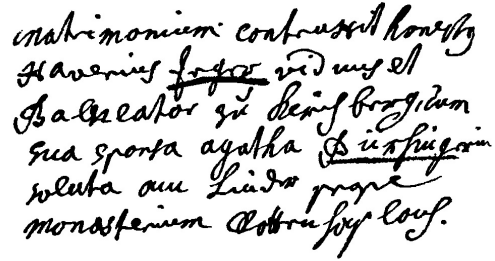 matrimonium contraxit honesty
Xaverius Jeger viduus et
Balneator zu Kirchberg cum
sua sponsa agatha Bürhingerin
soluta aus Linder prope
monasterium